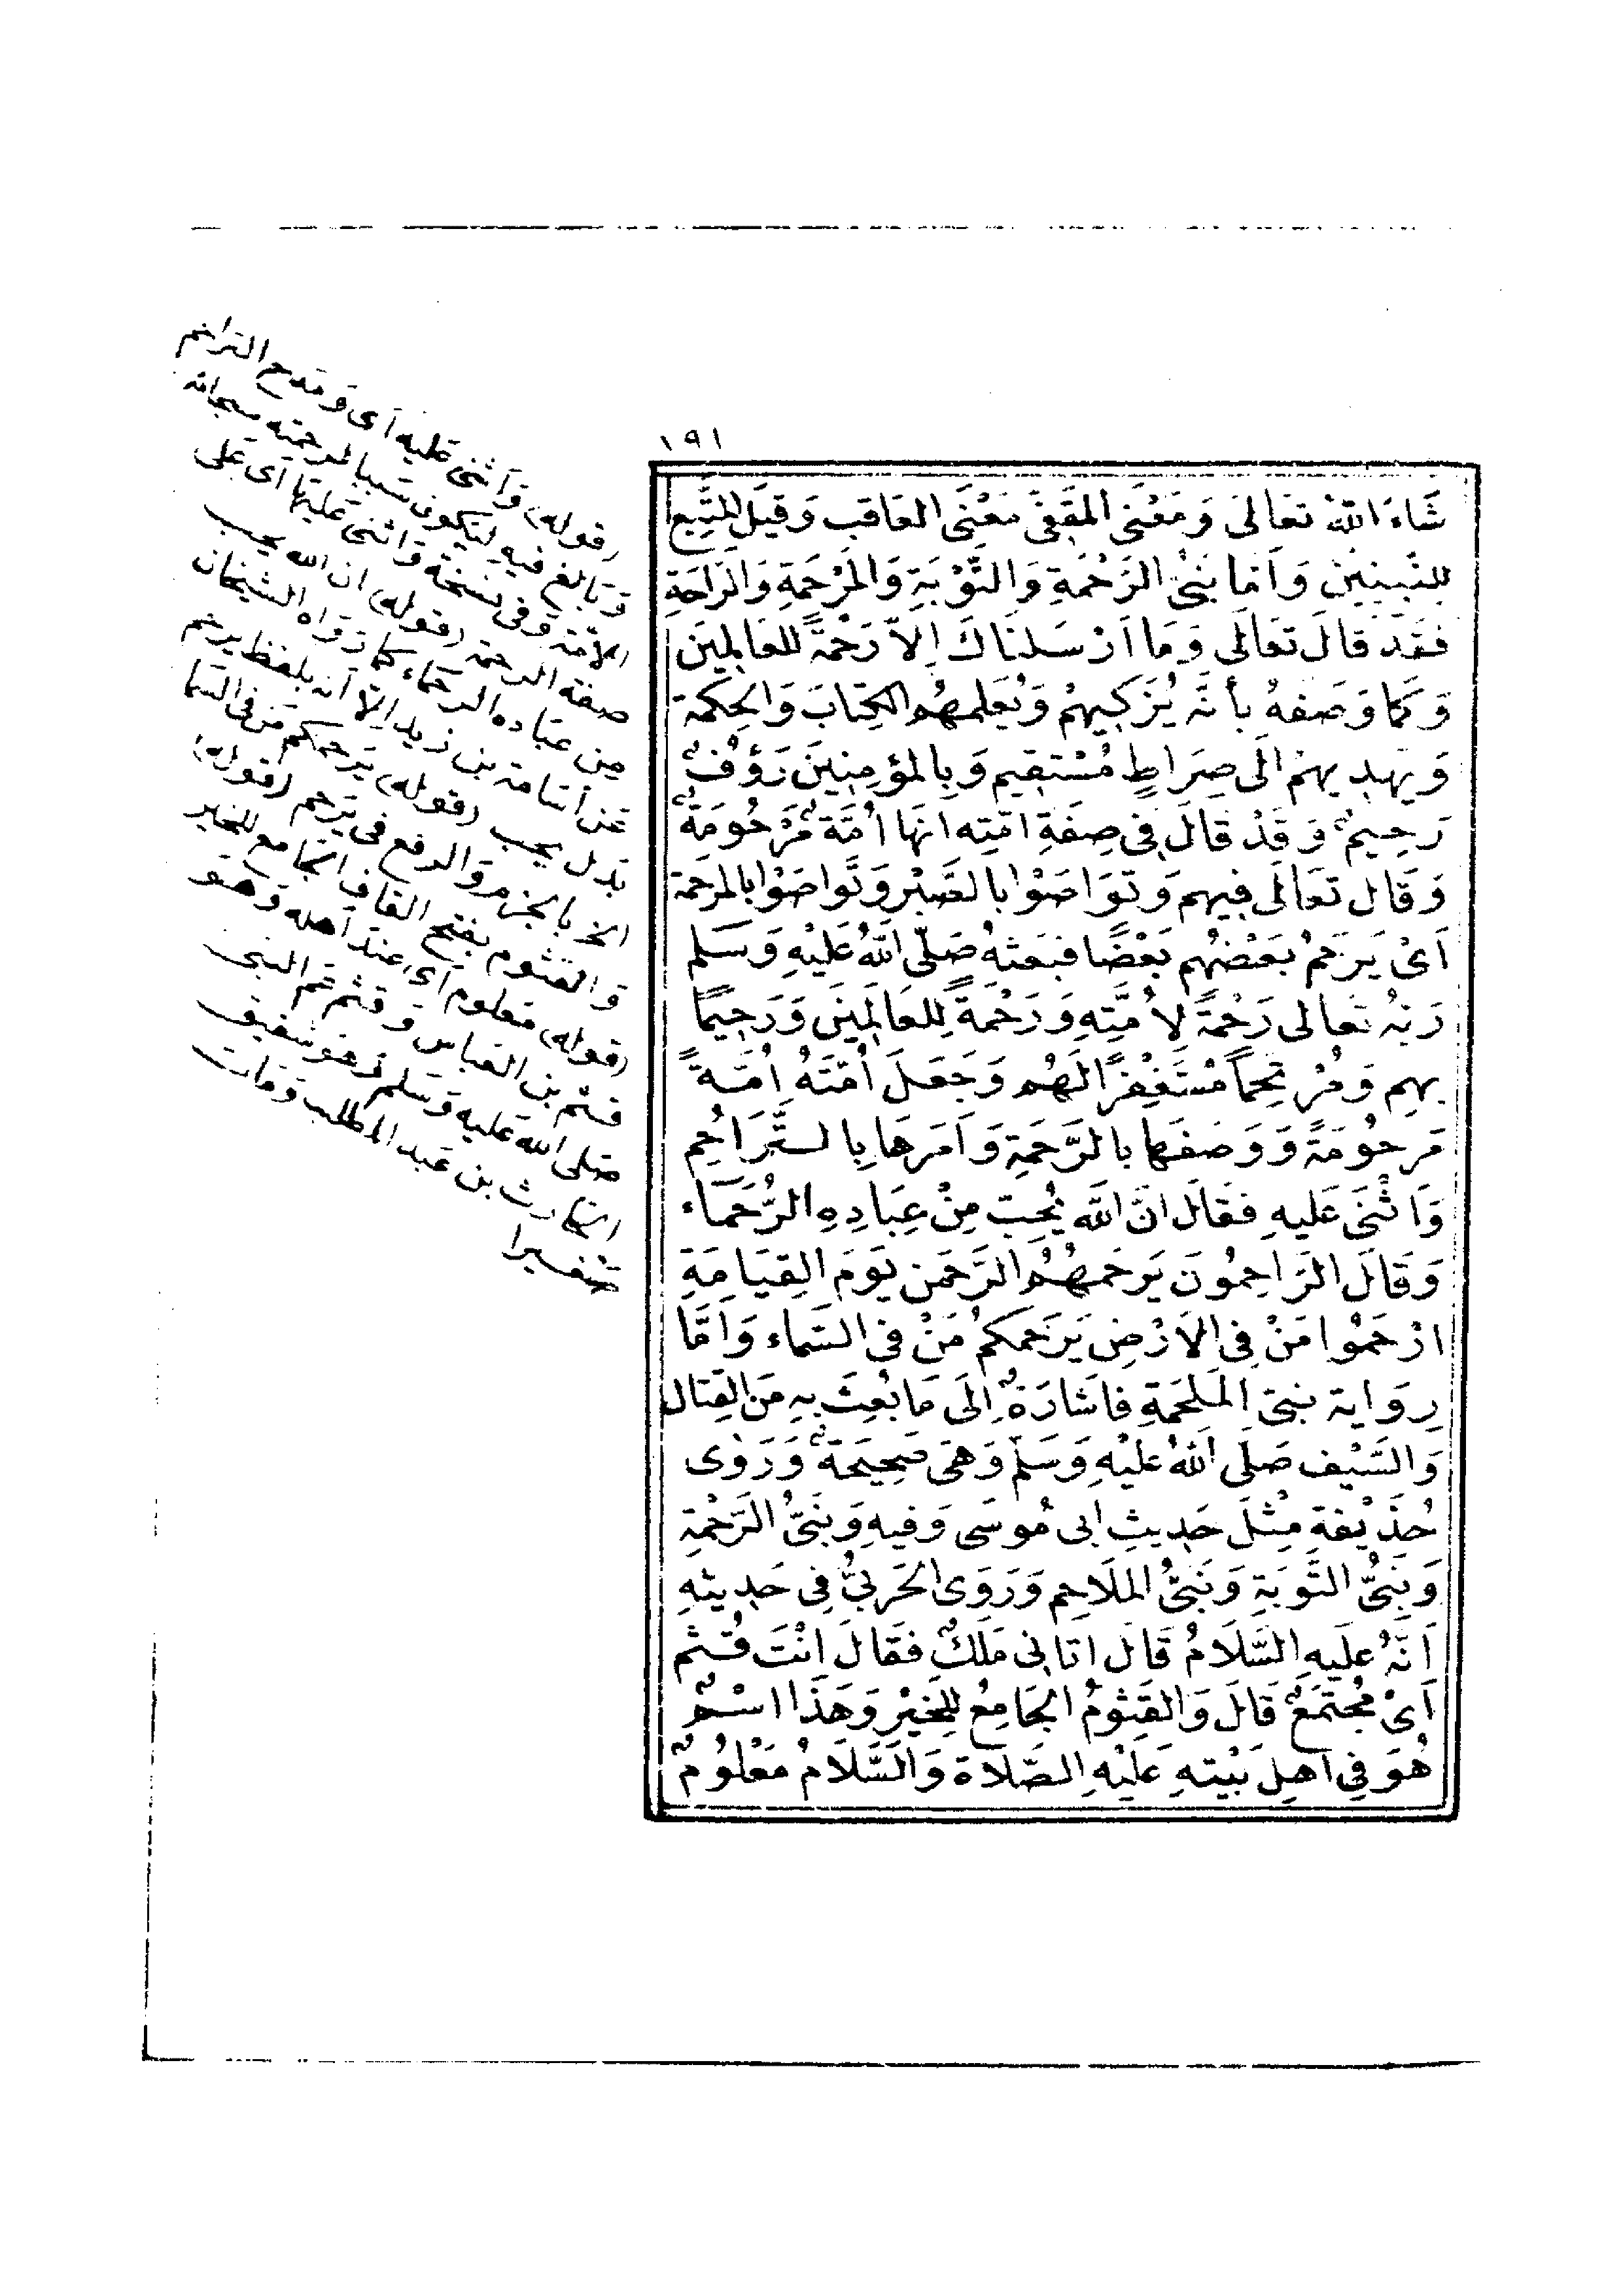 ١٩١
شَاءَ اللهُ تعَالىَ وَمَعْنىَ المقَفىّ مَعْنىَ العَاقب وَقيَل المتَّبِع
للنّبيين وَأمّا نبَىُّ الرَحْمَةِ وَالتَّوْبَةِ وَالمرْحَمَةِ وَالرَاحَةِ
فقَدَ قالَ تعَالَى وَمَا اَرْسَلنَاكَ اِلاّ رَحْمَةً للعَالمِينَ
وَكمَا وَصَفهُ بأنّهُ يُزَكِيهِمْ وَيُعَلمهُم الكِتابَ وَالحِكمَة
وَيهْدِيهِمْ الَى صِرَاطٍ مُسْتقِيمٍ وَبِالمؤمِنِينَ رَؤُفٌ
رَحِيمٌ وَقدْ قَالَ فِى صِفَةِ امّتِه انهَا اُمَّة مَرْحُومَةٌ
وَقَال تعَالَى فِيهِم وَتوَاصَوْا بالصَّبْر وَتوَاصَوْا بالمرحَمة
اَىْ يَرحَمُ بَعْضُهُم بَعْضًا فبَعَثهُ صَلّى اللهُ عَليْهِ وَسَلم
رَبّهُ تعَالى رَحْمَةً لأُمَّتِهِ وَرَحْمَةً لِلعَالَمِينَ وَرَحِيمًا
بهِم وَمُتَرَحِّمًا مُسْتغفِرًا لهُم وَجَعَلَ اُمّتَهُ اُمَّةً
مَرحُومَةً وَوَصَفهَا بالرَّحمَةِ وَاَمَرهَا بِالتَّرَاحُمِ
وَاَثْنَى عَليهِ فقَالَ انَّ اللهَ يُحِبّ مِنْ عِبَادِهِ الرُّحَمَاء
وَقَالَ الرَاحِمُونَ يَرحَمهُمُ الرَّحمَن يَومَ القِيَامَةِ
ارْحَمُوا مَنْ فِى الاَرْضِ يَرحَمكمُ مَنْ فى السّمَاء وَاَمَّا
رِوَاية نبىّ المَلحَمَةِ فاشَارَةٌ اِلَى مَا بُعِثَ بهِ مَن القِتال
وَالسَّيْف صَلَّى اللهُ عَليْهِ وَسَلّم وَهىَ صَحِيحَةٌ وَرَوٰى
حُذَيْفة مِثْلَ حَدِيثِ ابى مُوسَى وَفيهِ وَنَبىُّ الرَّحْمَةِ
وَنَبىُّ التَّوبَةِ وَنَبىُّ الملَاحِم وَرَوَى الحَربىُّ فِى حَدِيثهِ
اَنّهُ عَليَهِ السَّلَامُ قَال اتَانِى مَلَكٌ فقَالَ اَنْتَ قُثَم
اَىْ مُجْتمَعٌ قَالَ وَالقَثُومُ الجَامِعُ لِلخَيْر وَهَذَا اسْمٌ
هُوَ فِى اَهِل بَيْتهِ عَليْهِ الصّلاَة وَالسَّلاَمُ مَعْلُومٌ
(قوله) وَاَثنى عَليه اَى وَمَدح التراحم
وَبَالغ فيه ليَكون سَببا لمرحمته سبحانه
الأمّة وَفى نسخة وَاثنى عَليهَا اَى عَلى
صفة الرحمة (قوله) ان الله يحب
من عبَاده الرحمَاء كمَا رَوَاه الشيخان
عَن اُسَامة بن زيد الّا اَنه بلفظ يرحم
بَدل يحب (قوله) يَرحمكم مَن فى السّما
الخ بالجزم وَالرفع فى يَرحم (قوله)
وَالقثوم بفتح القاف الجامع للخير
(قوله) مَعلوم اَى عندَ اَهله وَهو
قثم بن العَباس وَقثم عَم النبى
صَلى الله عَليه وَسَلم وَهو شقيق
الحَارث بن عَبد المطلب وَمَات
صَغيرا